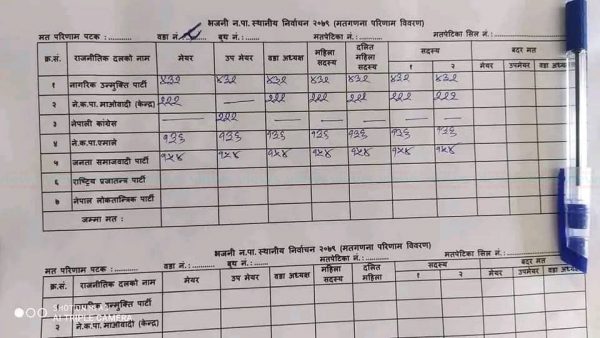 भजनी न.पा. स्थानीय निर्वाचन २०७९ (मतगणना परिणाम विवरण)
मत परिणाम पटक : ........... वडा नं.: बुथ नं.: ........... मतपेटिका नं.: ........... मतपेटिका सिल नं.: ...........
क्र.सं. राजनीतिक दलको नाम मेयर उप मेयर वडा अध्यक्ष महिला सदस्य दलित महिला सदस्य सदस्य १ २ बदर मत मेयर उपमेयर वडा अ.
१ नागरिक उन्मुक्ति पार्टी ४३२ ४३२ ४३२ ४३२ ४३२ ४३२ ४३२
२ ने.क.पा. माओवादी (केन्द्र) २२२ — २२२ २२२ २२२ २२२ २२२
३ नेपाली कांग्रेस — २२२ — — — — —
४ ने.क.पा.एमाले १३६ १३६ १३६ १३६ १३६ १३६ १३६
५ जनता समाजवादी पार्टी १५४ १५४ १५४ १५४ १५४ १५४ १५४
६ राष्ट्रिय प्रजातन्त्र पार्टी
७ नेपाल लोकतान्त्रिक पार्टी
जम्मा मत :
भजनी न.पा. स्थानीय निर्वाचन २०७९ (मतगणना परिणाम विवरण)
मत परिणाम पटक : ........... वडा नं.: ........... बुथ नं.: ........... मतपेटिका नं.: ........... मतपेटिका सिल नं.: ...........
क्र.सं. राजनीतिक दलको नाम मेयर उप मेयर वडा अध्यक्ष महिला सदस्य दलित महिला सदस्य १ २ बदर मत मेयर उपमेयर वडा अ.
उन्मुक्ति पार्टी
२ ने.क.पा. माओवादी (केन्द्र)
SHOT ON
AI TRIPLE CAMERA